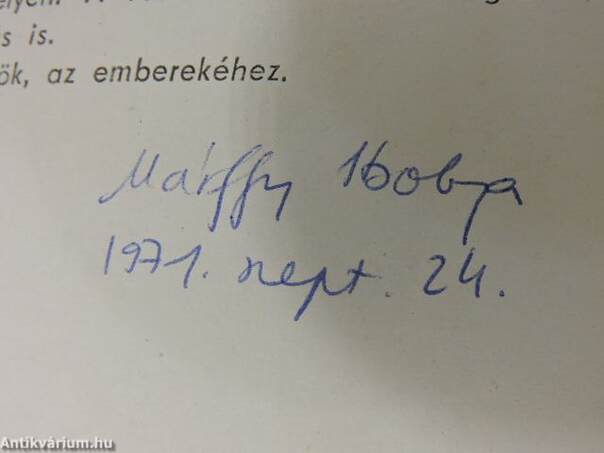 s is.
ök, az emberekéhez.
Márffy Ibolya
1971. szept. 24.
Antikvárium.hu